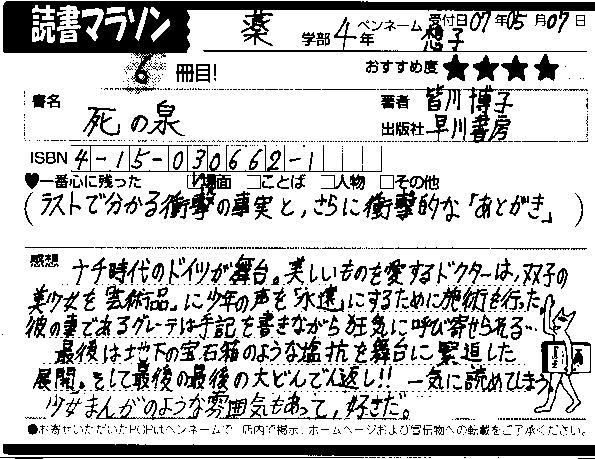 読書マラソン
薬 学部 4 年
ペンネーム 想子
受付日 07 年 05 月 07 日
6 冊目!
おすすめ度 ★★★★
書名 死の泉
著者 皆川 博子
出版社 早川書房
ISBN 4-15-030662-1
♥一番心に残った □場面 □ことば □人物 □その他
(ラストで分かる衝撃の事実と,さらに衝撃的な「あとがき」)
感想 ナチ時代のドイツが舞台。美しいものを愛するドクターは,双子の
美少女を「芸術品」に少年の声を「永遠」にするために施術を行った。
彼の妻であるグレーテは手記を書きながら狂気に呼び寄せられる…
最後は地下の宝石箱のような塩抗を舞台に緊迫した
展開。そして最後の最後の大どんでん返し!! 一気に読めてしまう
少女まんがのような雰囲気もあって,好きだ。
●お寄せいただいたPOPはペンネームで、店内で掲示、ホームページおよび宣伝物への転載をご了承ください。